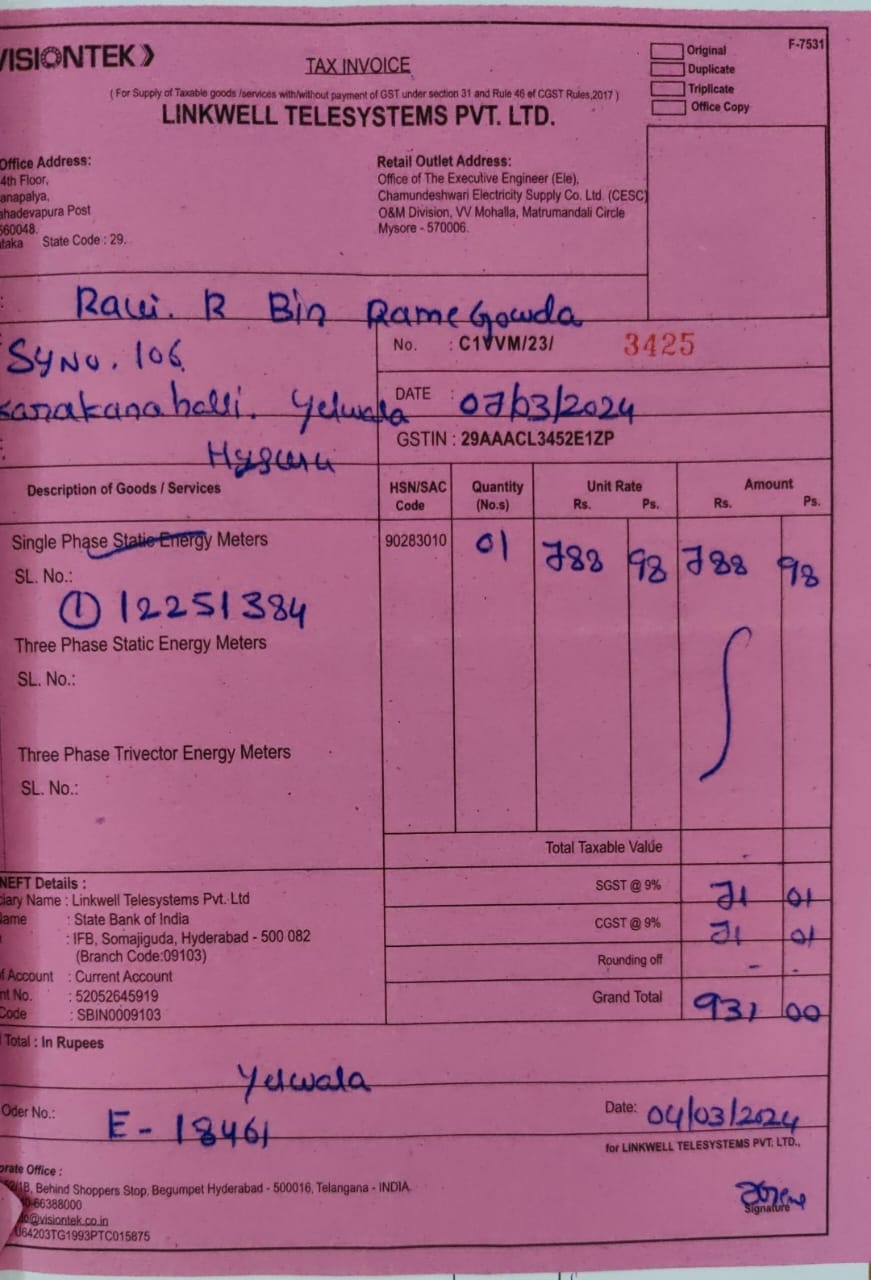 VISIONTEK
F-7531
TAX INVOICE
Original
Duplicate
Triplicate
Office Copy
( For Supply of Taxable goods /services with/without payment of GST under section 31 and Rule 46 of CGST Rules,2017 )
LINKWELL TELESYSTEMS PVT. LTD.
Office Address:
4th Floor,
anapalya,
ahadevapura Post
560048.
ataka State Code : 29.
Retail Outlet Address:
Office of The Executive Engineer (Ele),
Chamundeshwari Electricity Supply Co. Ltd. (CESC)
O&M Division, VV Mohalla, Matrumandali Circle
Mysore - 570006.
Ravi. R Bin Rame Gowda
SY NO. 106
No. : C1VVM/23/ 3425
karakanahalli. Yelwala
DATE : 07/03/2024
GSTIN : 29AAACL3452E1ZP
Description of Goods / Services HSN/SAC Code Quantity (No.s) Unit Rate Rs. Ps. Amount Rs. Ps.
Single Phase Static Energy Meters 90283010 01 788 98 788 98
SL. No.:
① 12251384
Three Phase Static Energy Meters
SL. No.:
Three Phase Trivector Energy Meters
SL. No.:
Total Taxable Value
SGST @ 9% 71 01
CGST @ 9% 71 01
Rounding off - -
Grand Total 931 00
NEFT Details :
ciary Name : Linkwell Telesystems Pvt. Ltd
Name : State Bank of India
: IFB, Somajiguda, Hyderabad - 500 082
(Branch Code:09103)
f Account : Current Account
nt No. : 52052645919
Code : SBIN0009103
Total : In Rupees
Yelwala
Oder No.: E - 18461
Date: 04/03/2024
for LINKWELL TELESYSTEMS PVT. LTD.,
Signature
orate Office :
Behind Shoppers Stop, Begumpet Hyderabad - 500016, Telangana - INDIA.
66388000
@visiontek.co.in
U64203TG1993PTC015875